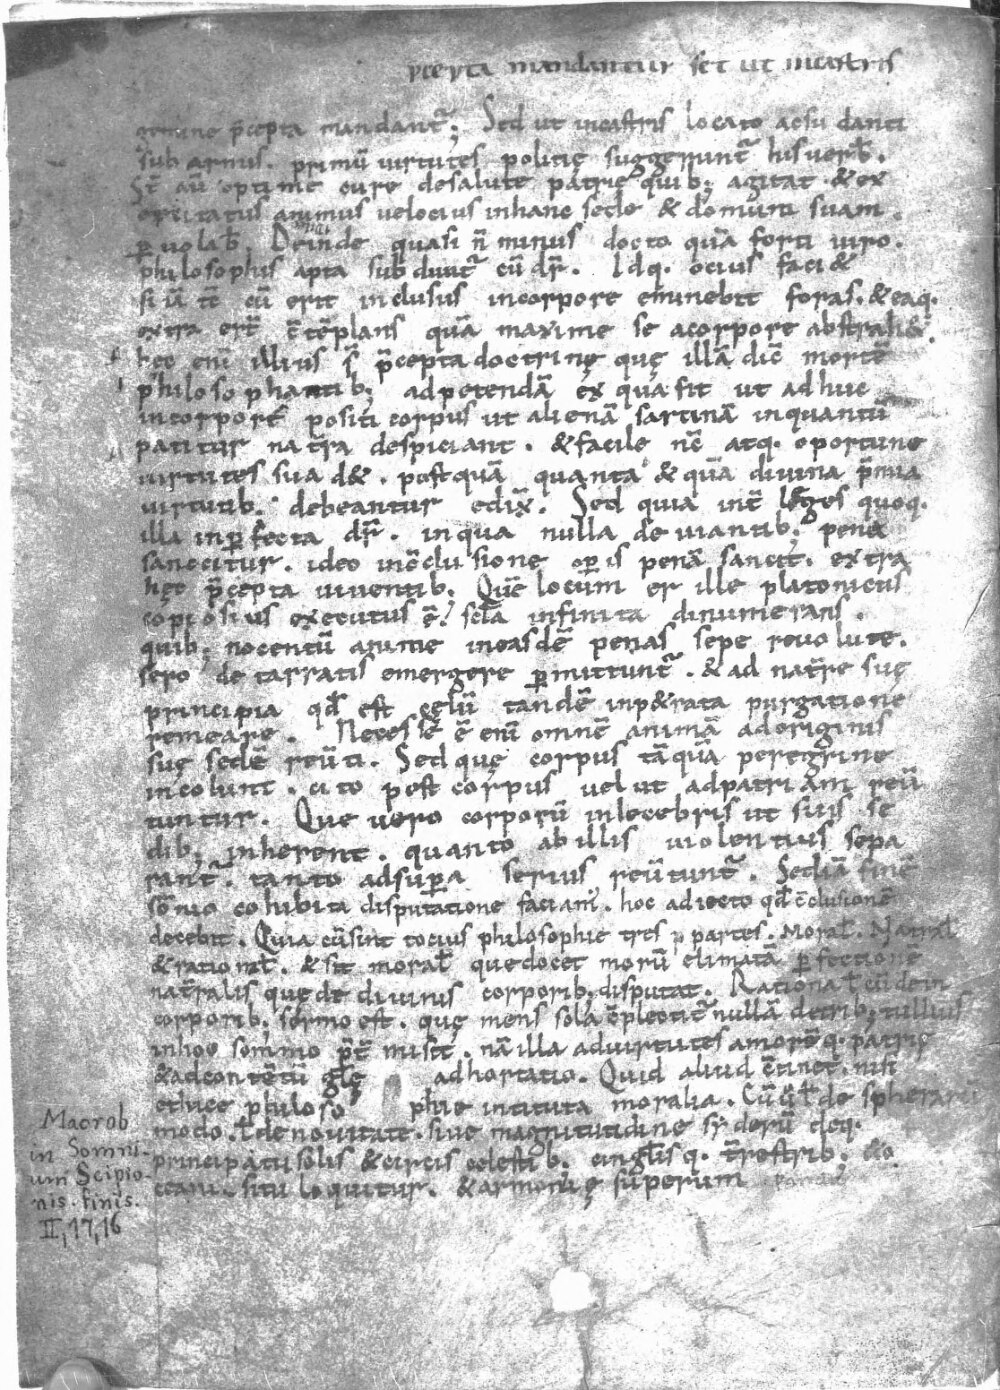 mandantur set ut incastris
gemine p̄cepta mandant᷑; Sed ut incastris locato aesu danti
sub armis. primū uirtutes politicę suggerunt᷑ his uerb̄.
St̄ aū optime cure desalute patrię quib; agitat & ex
ercitatus animus uelocius inhanc sede & domum suam.
ꝑuolab̄. Deinde quasi n̄ minus docto quā forti uiro.
philosophis apta subdunt᷑ cū dr̄. Idq. ocius faci&
si iā tc̄ cū erit inclusus incorpore eminebit foras. & eaq.
extra ert̄ c̄tēplans quā maxime se acorpore abstrah&.
hec enī illius s̄ p̄cepta doctrinę quę illā dic̄ mortē
philosophantib; adpetendā ex qua fit ut adhuc
incorpore positi corpus ut alienā sarcinā inquantū
patitur nat᷑ra despiciant. & facile nc̄ atq. oportune
uirtutes suad&. postquā quanta & quā diuina p̄mia
uirtutib. debeantur edix̄. Sed quia int̄ leges quoq.
illa inꝑfecta dr̄. inqua nulla deuiantib; pena
sanccitur. ideo inc̄clusione oꝑis penā sancit. extra
hęc p̄cepta uiuentib. Quē locum er ille platonicus
copiosius executus ē. sc̄la infinita dinumerans.
quib; nocentū anime ineasdē penas sepe reuolute.
sero de tarratis emergere ꝑmittunt᷑. & ad nat᷑re suę
principia qđ est cęlū tandē inp&rata purgatione
remeare. Necesse ē enī omnē animā adoriginis
suę sedē reūti. Sed quę corpus tāquā peregrine
incolunt. cito post corpus uelut adpatriam reū
tuntur. Que uero corporū inlecebris ut suis se
dib; inherent. quanto ab illis uiolentius sepa
rant᷑. tanto adsuꝑa serius reūtunt᷑. Sed iā finē
sōnio cohibita disputatione faciam. hoc adiecto qđ c̄clusionē
decebit. Quia cūsint tocius philosophie tres partes. Moral̄. Natral̄
& rational̄. & sit moral̄ que docet morū elimatā ꝑfectionē
nat᷑ralis quę de diuinis corporib; disputat. Rational̄ cū dein
corporib; sermo est. quę mens sola c̄plectit᷑ nullā detrib; tullius
inhoc somnio p̄t̄misit. nā illa aduirtutes amorēq. patrię
& adcontētū gl̄ę adhortatio. Quid aliud c̄tinet. nisi
ethice philosophie intituta moralia. Cū ū ł de spherarū
modo. ł de nouitate. siue magnitutidine syderū deq.
principatu solis & circis celestib. cinglisq. t᷑restrib; & o
ceani. situ loquitur. & armonię superum
Macrob
in Somni-
um Scipio-
nis. finis.
II, 17, 16